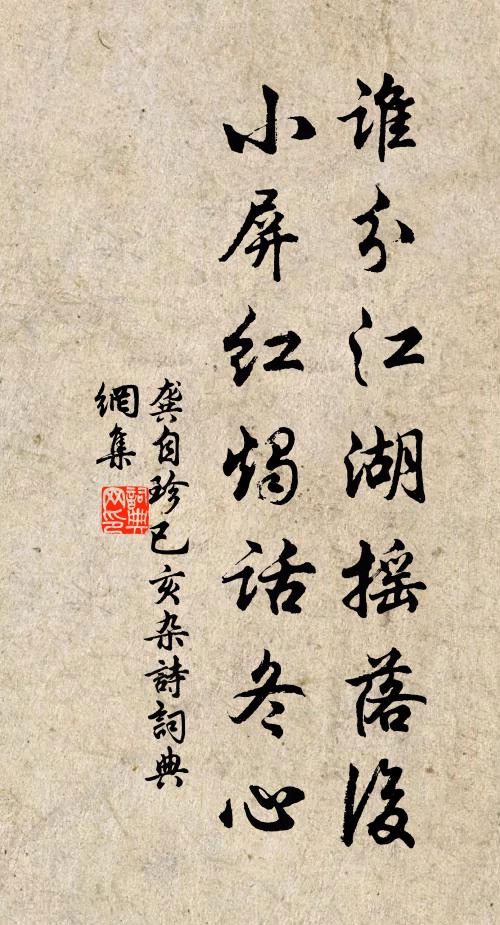 谁分江湖摇落後
小屏红烛话冬心
龚自珍己亥杂詩詞典
網集
詞典网印